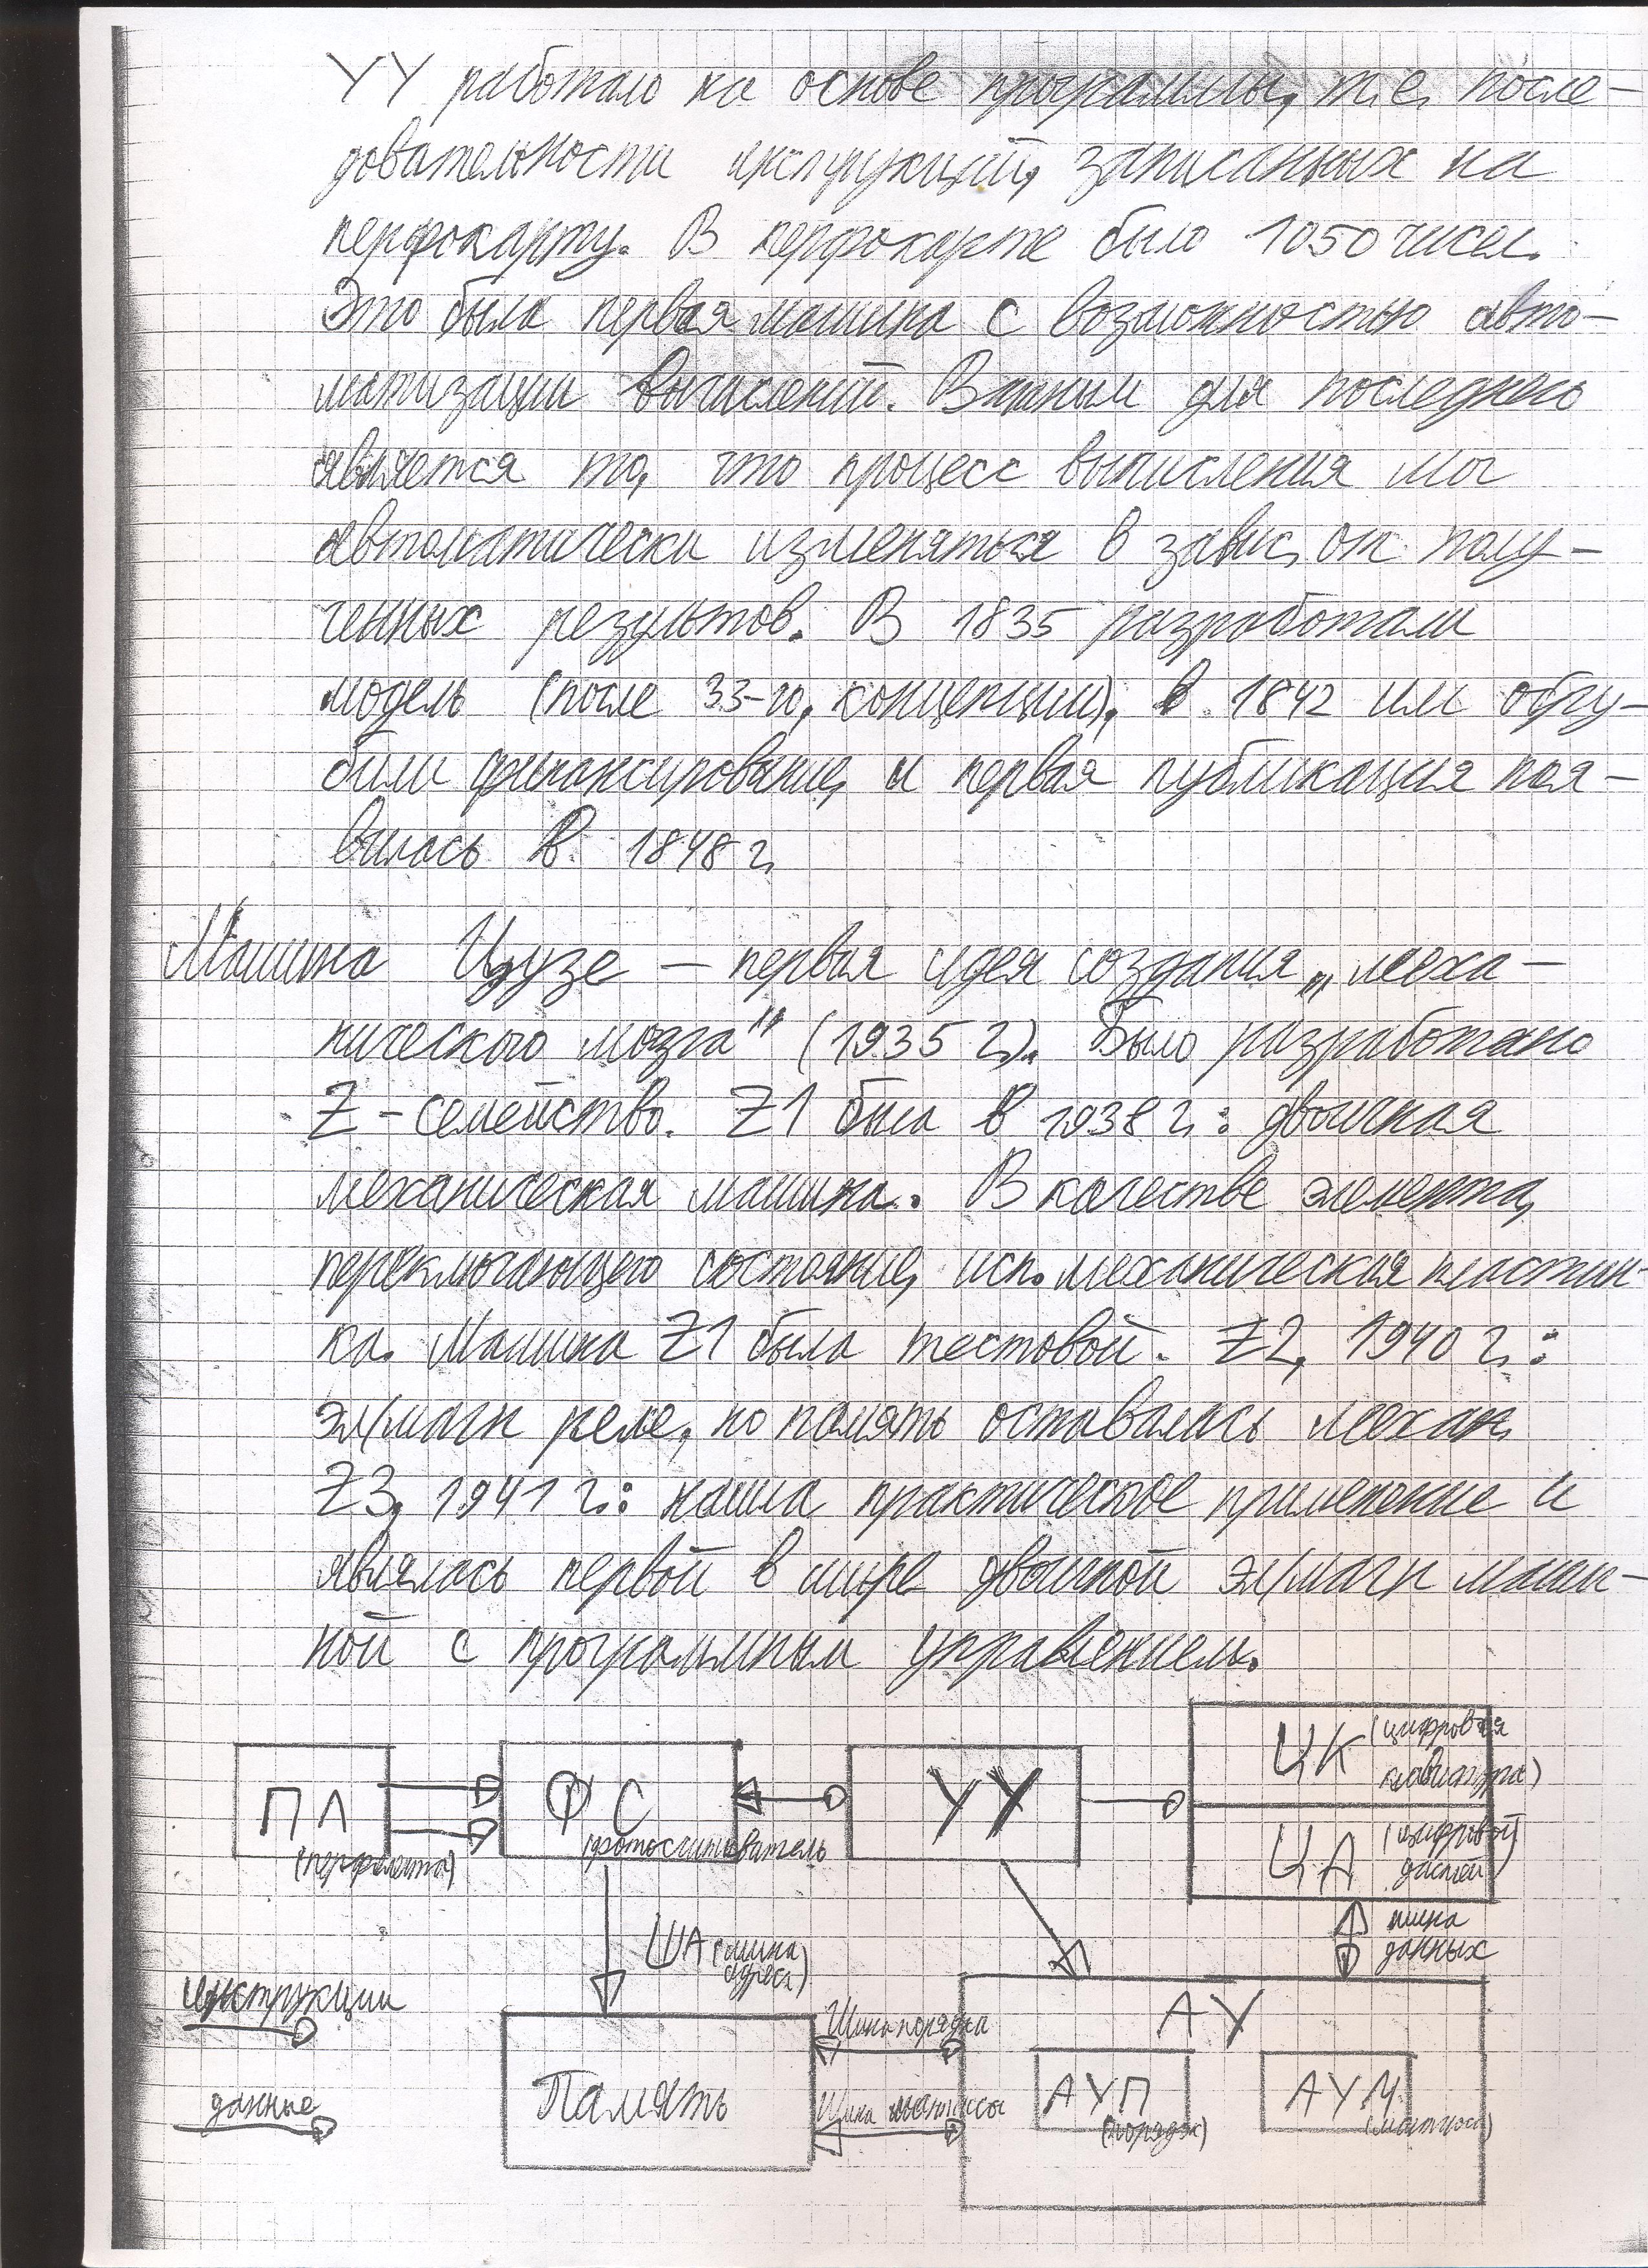 УУ работало на основе программы, т.е. после-
довательности инструкций, записанных на
перфокарту. В перфокарте было 1050 чисел.
Это была первая машина с возможностью авто-
матизации вычислений. Важным для последнего
является то, что процесс вычисления мог
автоматически изменяться в завис. от полу-
ченных результов. В 1835 разработали
модель (после 33-го, концепции). в 1842 им обру-
били финансирование, и первая публикация поя-
вилась в 1848 г.
Машина Цузе – первая идея создания „меха-
нического мозга" (1935 г.). Было разработано
Z-семейство. Z1 была в 1938 г.: двоичная
механическая машина. В качестве элемента,
переключающего состояние, исп. механическая пластин-
ка. Машина Z1 была тестовой. Z2, 1940 г.:
эл/магн реле, но память оставалась механ.
Z3, 1941 г.: нашла практическое применение и
являлась первой в мире двоичной эл/магн маши-
ной с программным управлением.
ПЛ (перфолента)
ФС (фотосчитыватель
УУ
ЦК (цифровая клавиатура)
ЦД (цифровой дисплей)
ША (шина адреса)
шина данных
инструкции
данные
Память
Шина порядка
Шина мантиссы
АУ
АУП (порядок)
АУМ (мантисса)